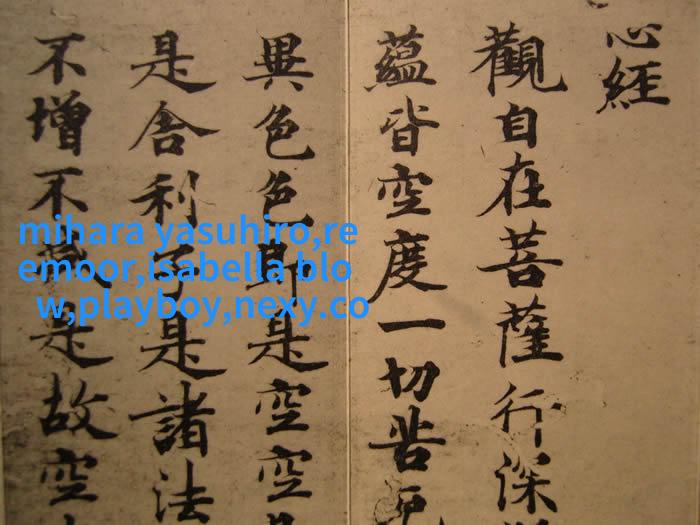 心經
觀自在菩薩行深
蘊皆空度一切苦厄
異色色即是空空是
是舍利子是諸法
不增不減是故空
mihara yasuhiro,re
emoor,isabella blo
w,playboy,nexy.co